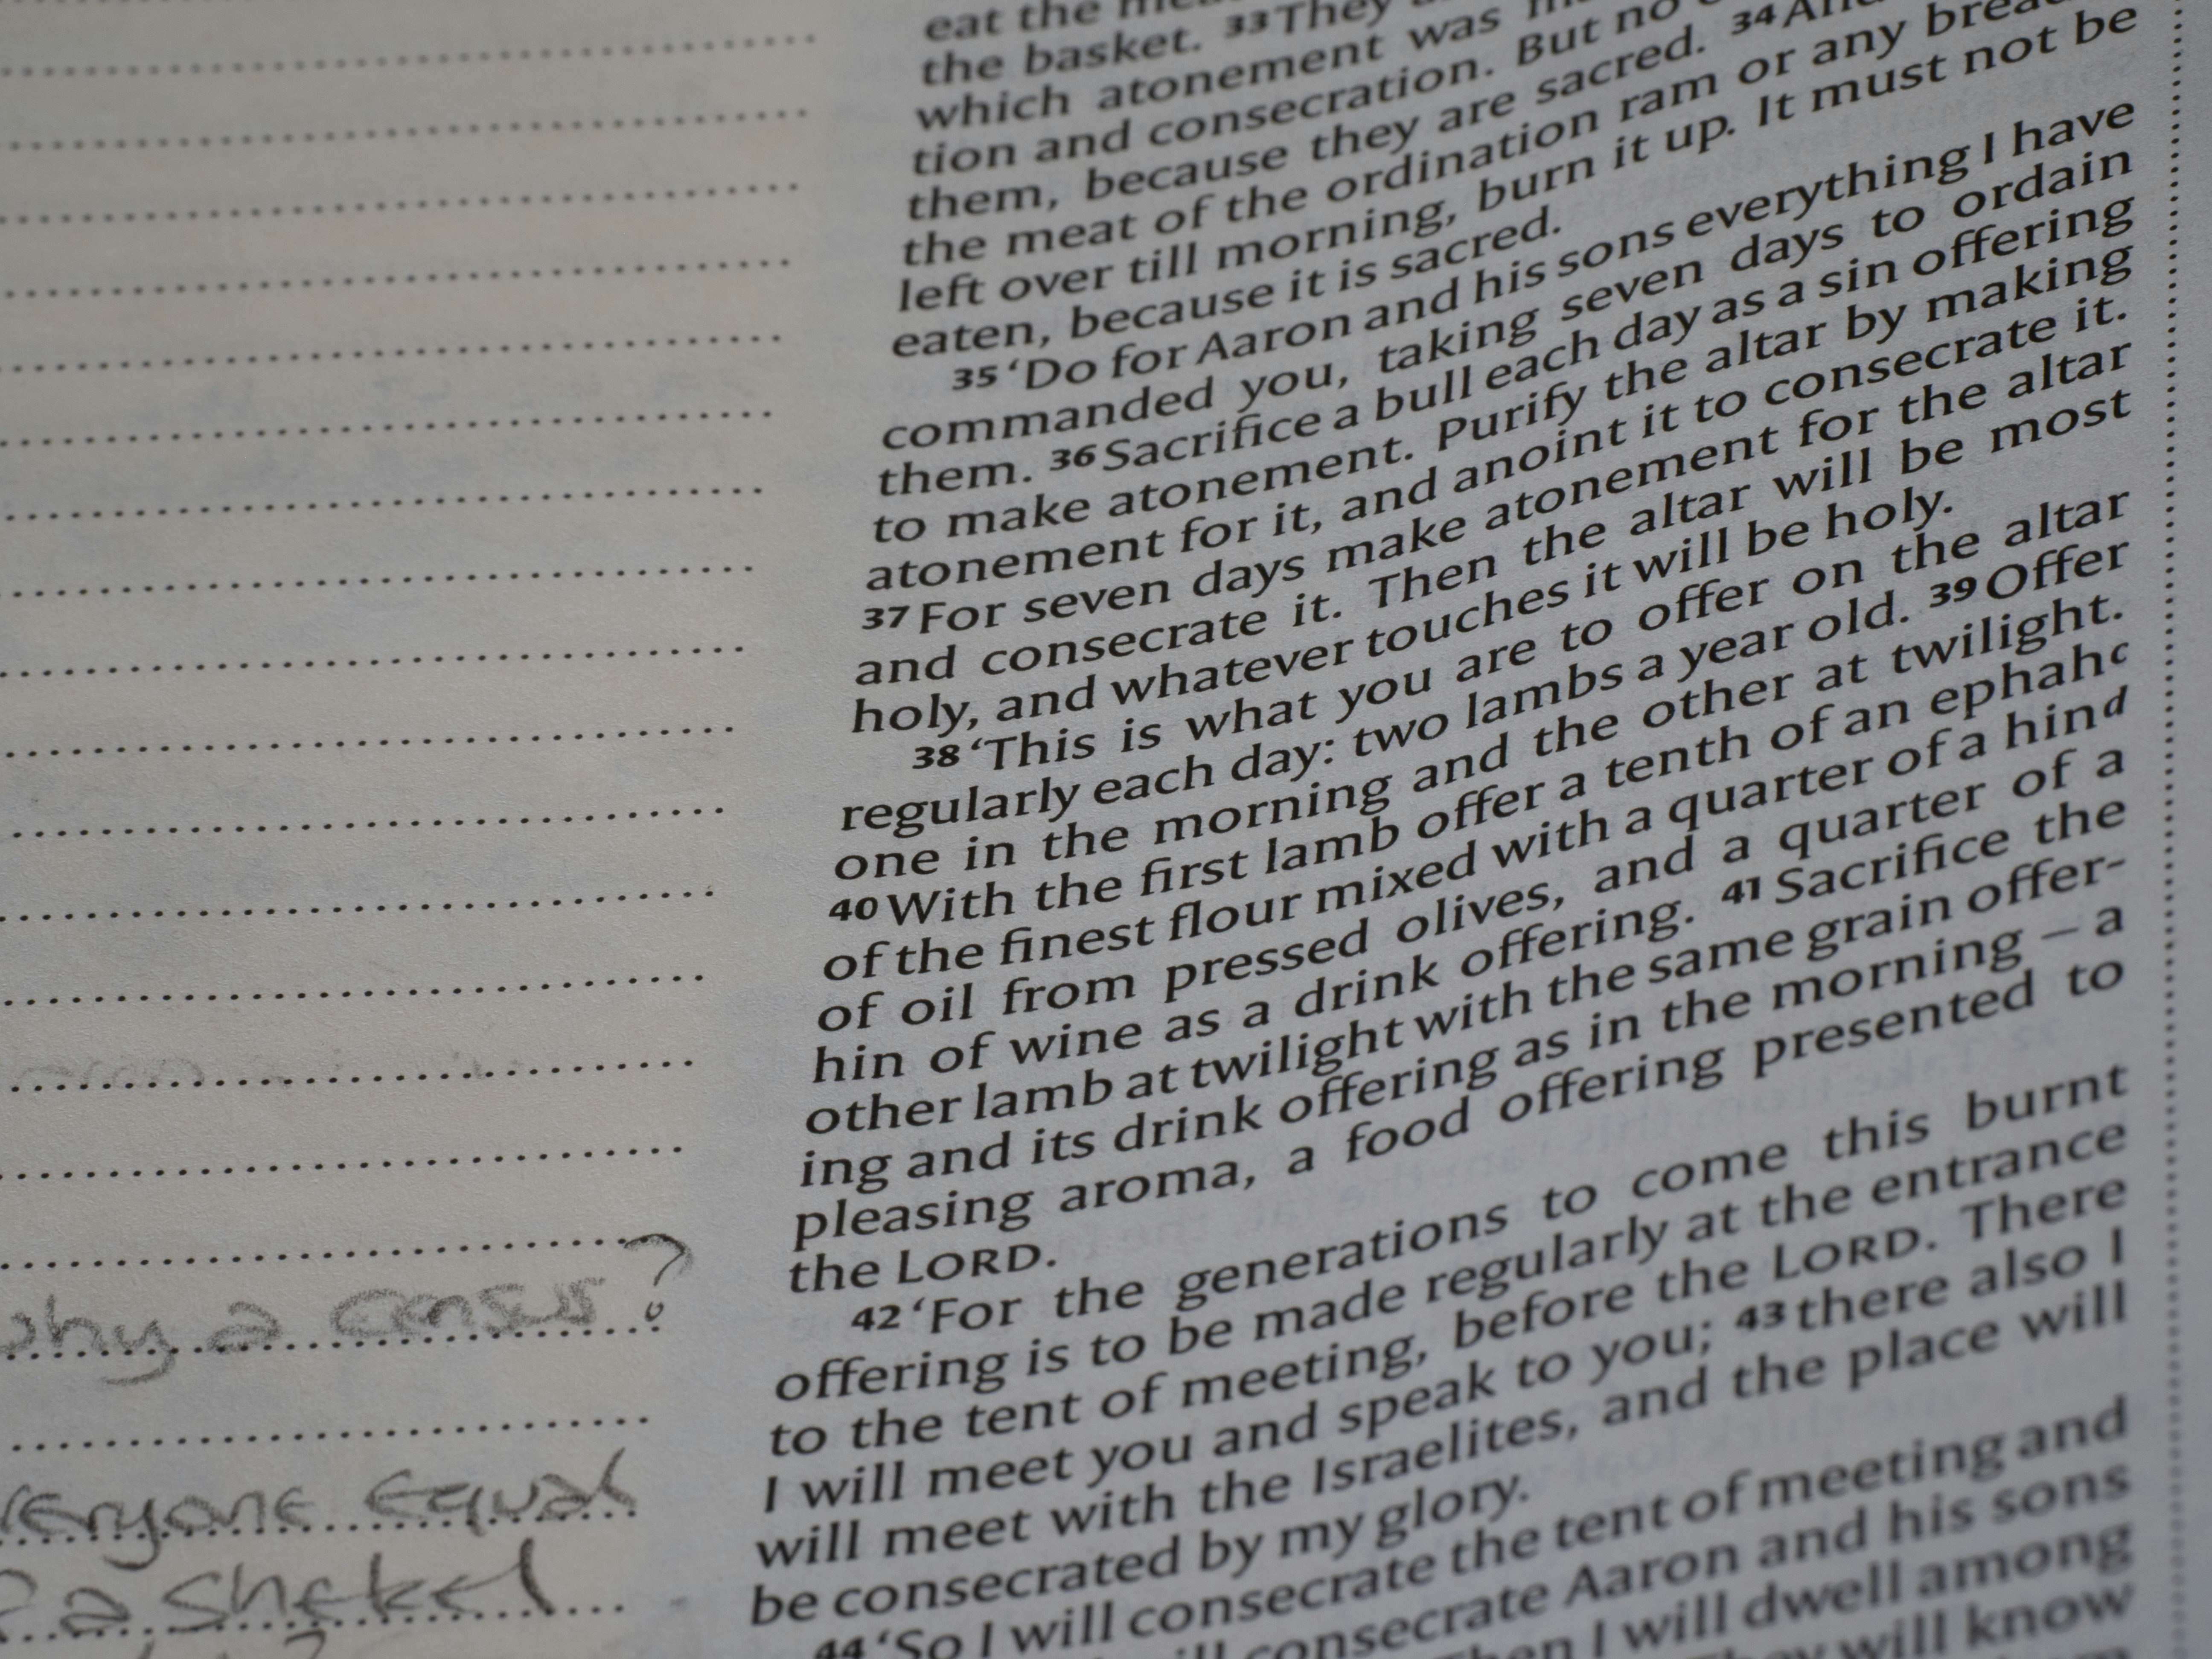 eat the
the basket. 33 They
which atonement was
tion and consecration. But no
them, because they are sacred. 34 And
the meat of the ordination ram or any bread
left over till morning, burn it up. It must not be
eaten, because it is sacred.
35 ‘Do for Aaron and his sons everything I have
commanded you, taking seven days to ordain
them. 36 Sacrifice a bull each day as a sin offering
to make atonement. Purify the altar by making
atonement for it, and anoint it to consecrate it.
37 For seven days make atonement for the altar
and consecrate it. Then the altar will be most
holy, and whatever touches it will be holy.
38 ‘This is what you are to offer on the altar
regularly each day: two lambs a year old. 39 Offer
one in the morning and the other at twilight.
40 With the first lamb offer a tenth of an ephah c
of the finest flour mixed with a quarter of a hin d
of oil from pressed olives, and a quarter of a
hin of wine as a drink offering. 41 Sacrifice the
other lamb at twilight with the same grain offer-
ing and its drink offering as in the morning – a
pleasing aroma, a food offering presented to
the LORD.
42 ‘For the generations to come this burnt
offering is to be made regularly at the entrance
to the tent of meeting, before the LORD. There
I will meet you and speak to you; 43 there also I
will meet with the Israelites, and the place will
be consecrated by my glory.
44 ‘So I will consecrate the tent of meeting and
consecrate Aaron and his sons
I will dwell among
will know
why a census?
everyone equal
a shekel